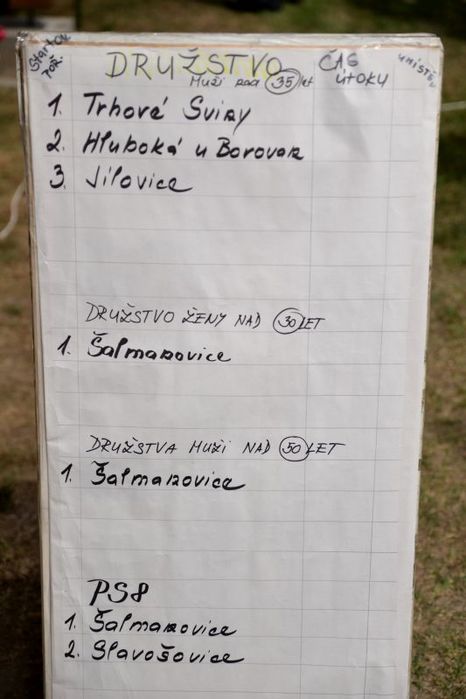 Startov. DRUŽSTVO ČAS UMÍSTĚN
POŘ. Muži nad 35 let ÚTOKU
1. Trhové Sviny
2. Hluboká u Borovan
3. Jílovice
DRUŽSTVO ŽENY NAD 30 LET
1. Šalmanovice
DRUŽSTVA MUŽI NAD 50 LET
1. Šalmanovice
PS8
1. Šalmanovice
2. Slavošovice